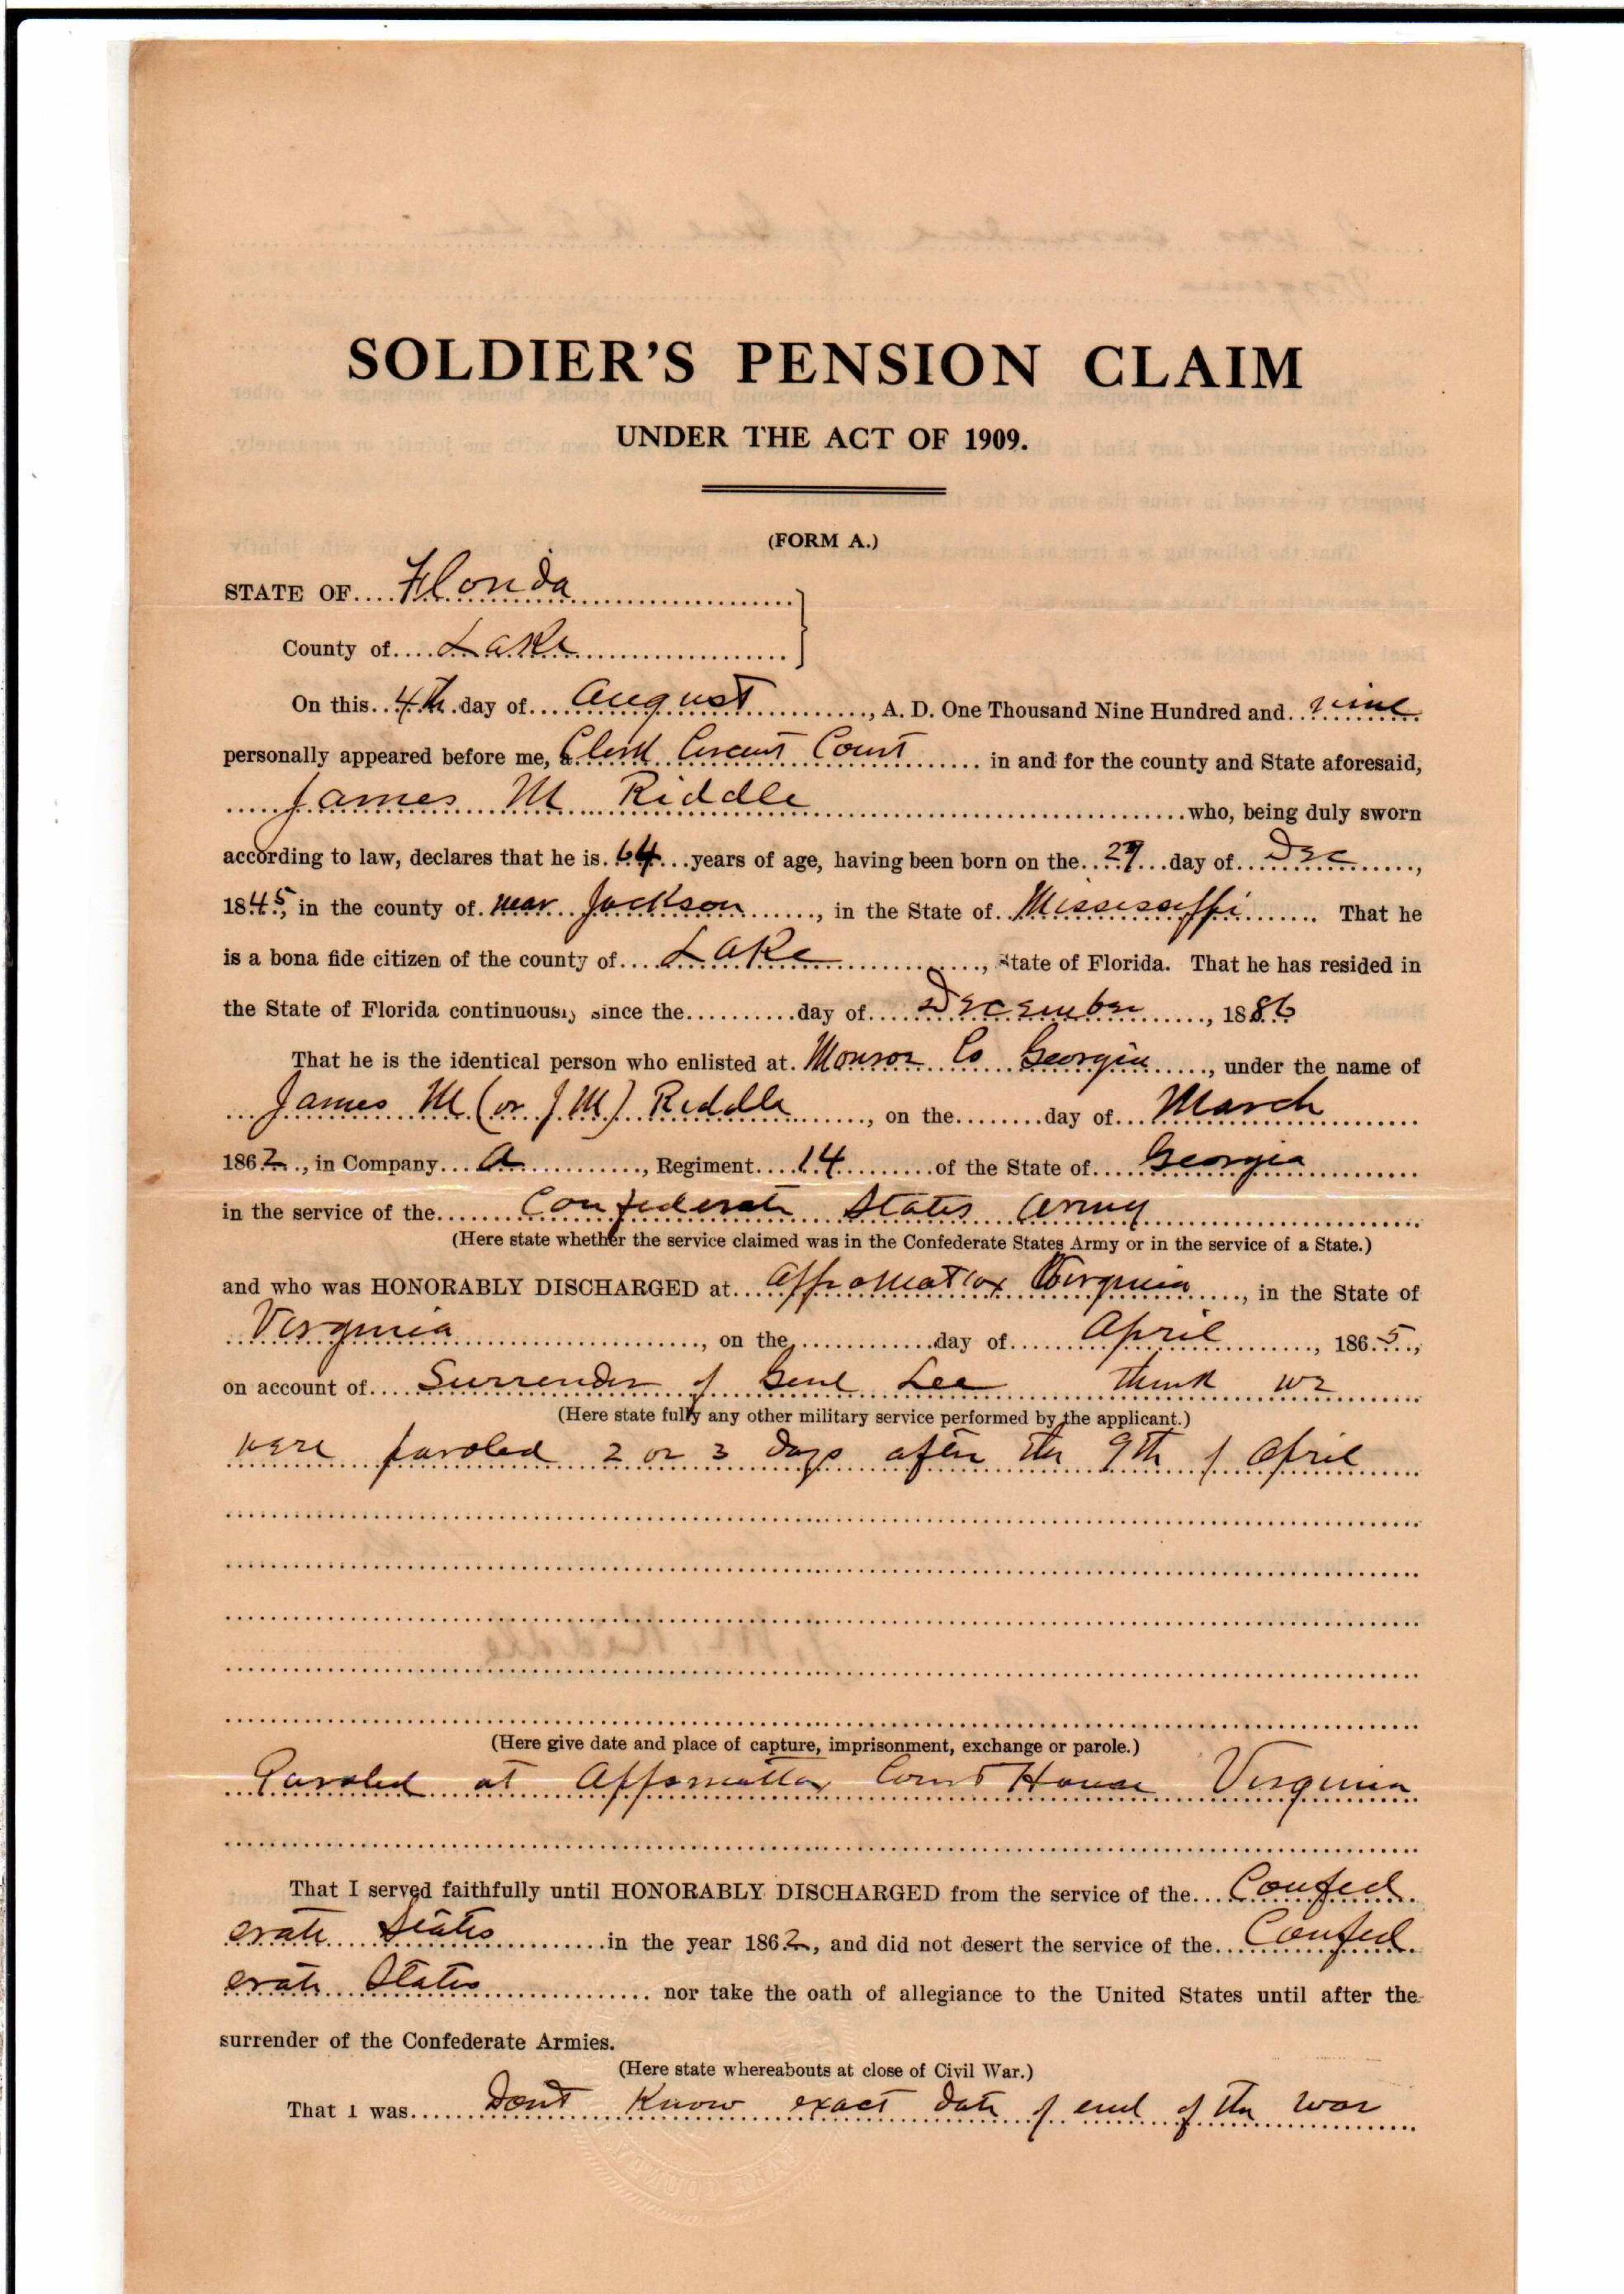 SOLDIER'S PENSION CLAIM
UNDER THE ACT OF 1909.
(FORM A.)
STATE OF....Florida
County of....Lake
On this..4th.day of....August............, A. D. One Thousand Nine Hundred and..nine
personally appeared before me, a Clerk Circuit Court........ in and for the county and State aforesaid,
.....James M Riddle..................................who, being duly sworn
according to law, declares that he is.64...years of age, having been born on the..29...day of...Dec......,
1845, in the county of.near Jackson......., in the State of..Mississippi....... That he
is a bona fide citizen of the county of....Lake..............., State of Florida. That he has resided in
the State of Florida continuously since the..........day of.....December......., 1886
That he is the identical person who enlisted at.Monroe Co Georgia....., under the name of
...James M (or J. M) Riddle......., on the........day of...March
1862..., in Company...A............, Regiment....14.........of the State of....Georgia
in the service of the.......Confederate States Army
(Here state whether the service claimed was in the Confederate States Army or in the service of a State.)
and who was HONORABLY DISCHARGED at....Appomattox Virginia....., in the State of
..Virginia......................, on the.............day of......April........., 1865..,
on account of....Surrender of Genl Lee think we
(Here state fully any other military service performed by the applicant.)
were paroled 2 or 3 days after the 9th of April
(Here give date and place of capture, imprisonment, exchange or parole.)
Paroled at Appomattox Court House Virginia
That I served faithfully until HONORABLY DISCHARGED from the service of the...Confed
erate States...........in the year 1862, and did not desert the service of the...Confed
erate States.............. nor take the oath of allegiance to the United States until after the
surrender of the Confederate Armies.
(Here state whereabouts at close of Civil War.)
That I was......Dont Know exact date of end of the war